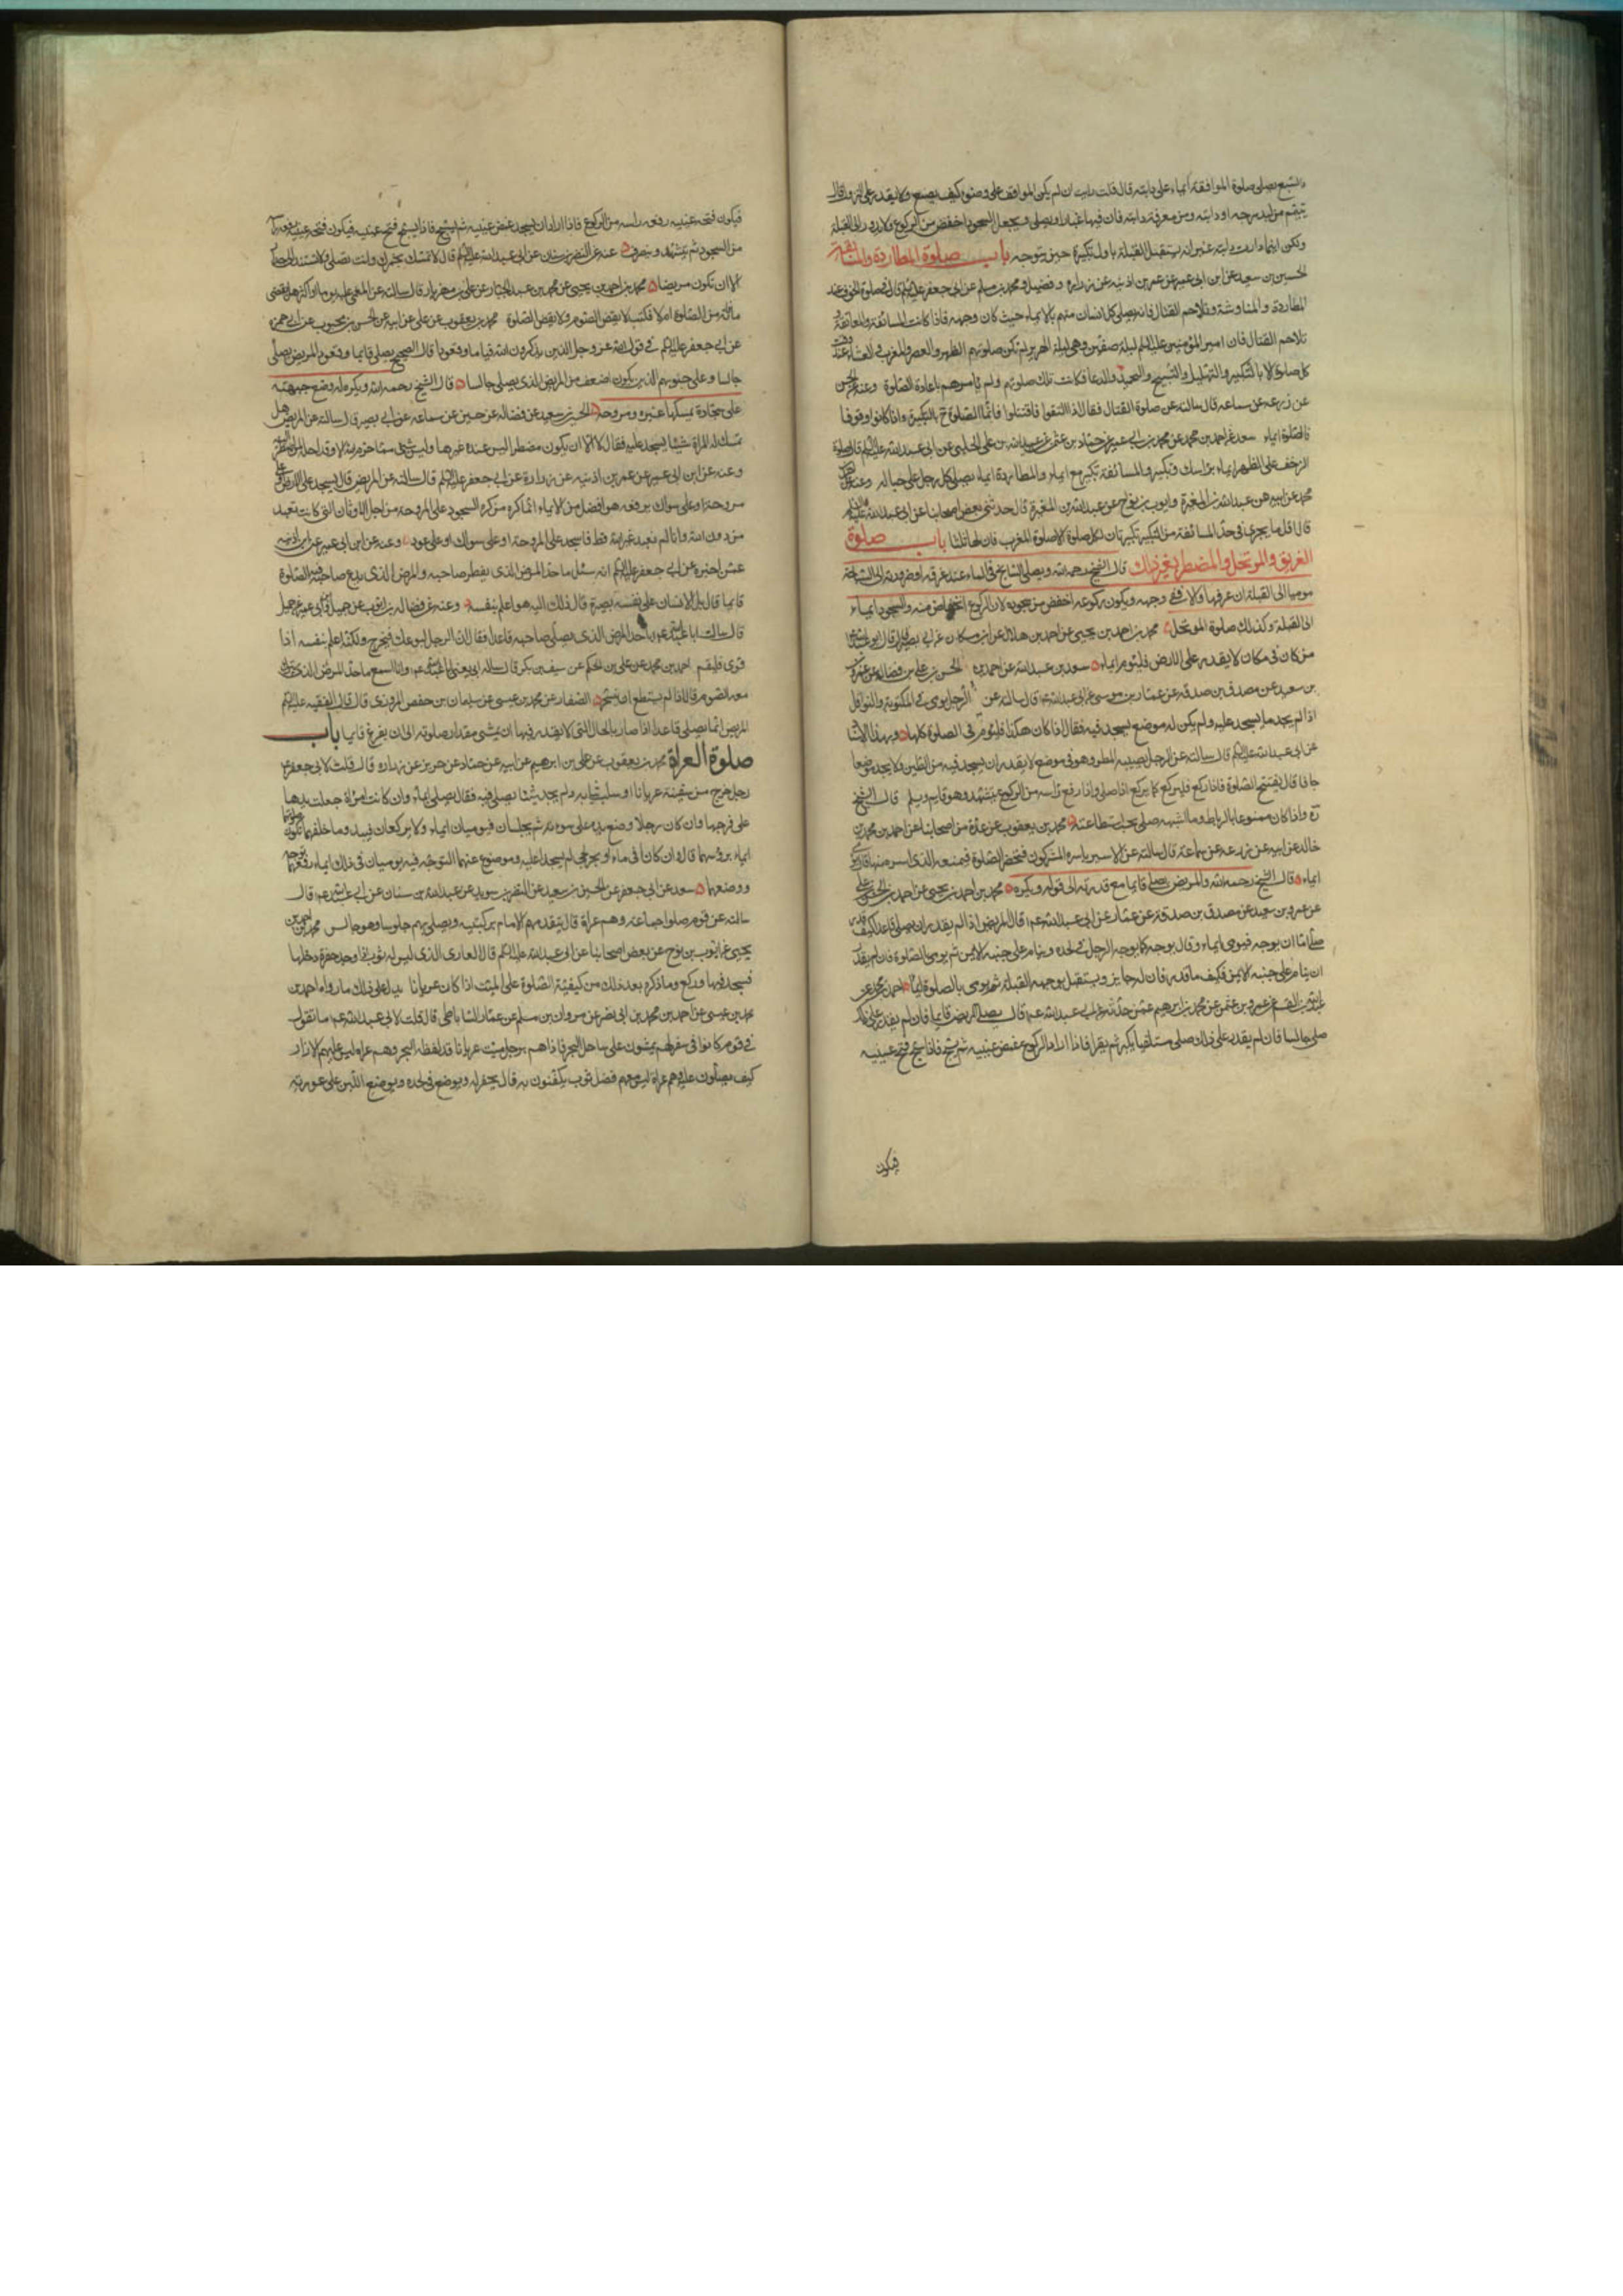 والسبع يصلي صلوة المواقفة ايماء على دابته قال قلت ارايت ان لم يكن المواقف على وضوء كيف يصنع ولا يقدر على النزول قال
يتيمم من لبد سرجه او دابته ومن معرفة دابته فان فيها غبارا ويصلي ويجعل السجود اخفض من الركوع ولا يدور الى القبلة
ولكن اينما دارت دابته غير انه يستقبل القبلة باول تكبيرة حين يتوجه باب صلوة المطاردة والمسائفة
الحسين بن سعيد عن ابن ابي عمير عن عمر بن اذينه عن زراره وفضيل ومحمد بن مسلم عن ابي جعفر عليه السلم قال في صلوة الخوف عند
المطاردة والمناوشة وتلاحم القتال فانه يصلي كل انسان منهم بالايماء حيث كان وجهه فاذا كانت المسائفة والمعانقة و
تلاحم القتال فان امير المؤمنين عليه السلم ليلة صفين وهي ليلة الهرير لم تكن صلوتهم الظهر والعصر والمغرب والعشاء عند وقت
كل صلوة الا بالتكبير والتهليل والتسبيح والتحميد والدعا فكانت تلك صلوتهم ولم يامرهم باعادة الصلوة وعنه عن الحسن
عن زرعه عن سماعه قال سالته عن صلوة القتال فقال اذا التقوا فاقتتلوا فانما الصلوة ح بالتكبير واذا كانوا وقوفا
فالصلوة ايماء سعد عن احمد بن محمد عن محمد بن ابي عمير عن حماد بن عثمن عن عبيد الله بن علي الحلبي عن ابي عبد الله عليه السلم قال صلوة
الزحف على الظهر ايماء براسك وتكبير والمسائفة تكبير مع ايماء والمطاردة ايماء يصلي كل رجل على حياله وعنه عن احمد بن
محمد عن ابيه عن عبد الله بن المغيرة وايوب بن نوح عن عبد الله بن المغيرة قال حدثني بعض اصحابنا عن ابي عبد الله عليه السلم
قال اقل ما يجزي في حد المسائفة من التكبير تكبيرتان لكل صلوة الا صلوة المغرب فان لها ثلثا باب صلوة
الغريق والموتحل والمضطر بغير ذلك قال الشيخ رحمه الله ويصلي السابح في الماء عند غرقه او ضرورته الى السباحة
موميا الى القبلة ان عرفها والا ففي وجهه ويكون ركوعه اخفض من سجوده لان الركوع انخفاض منه والسجود ايماء
الى القبلة وكذلك صلوة الموتحل محمد بن احمد بن يحيى عن احمد بن هلال عن ابن مسكان عن ابي بصير قال قال ابو عبد الله ع
من كان في مكان لا يقدر على الارض فليؤم ايماء سعد بن عبد الله عن احمد بن الحسن بن علي بن فضال عن عمرو
بن سعيد عن مصدق بن صدقه عن عمار بن موسى عن ابي عبد الله ع قال سالته عن الرجل يومي في المكتوبة والنوافل
اذا لم يجد ما يسجد عليه ولم يكن له موضع يسجد فيه فقال اذا كان هكذا فليؤم في الصلوة كلها وبهذا الاسنا
عن ابي عبد الله عليه السلم قال سالته عن الرجل يصيبه المطر وهو في موضع لا يقدر ان يسجد فيه من الطين ولا يجد موضعا
جافا قال يفتتح الصلوة فاذا ركع فليركع كما يركع اذا صلى واذا رفع راسه من الركوع يتشهد وهو قايم ويسلم قال الشيخ
ره واذا كان ممنوعا بالرباط وما اشبهه صلى بحسب استطاعته محمد بن يعقوب عن عدة من اصحابنا عن احمد بن محمد بن
خالد عن ابيه عن زرعه عن سماعة قال سالته عن الاسير ياسره المشركون فتحضر الصلوة فيمنعه الذي اسره منها قال يومي
ايماء قال الشيخ رحمه الله والمريض يصلي قايما مع قدرته الى قوله ويكره محمد بن احمد بن يحيى عن احمد بن الحسن بن علي
عن عمرو بن سعيد عن مصدق بن صدقة عن عمار عن ابي عبد الله ع قال المريض اذا لم يقدر ان يصلي قاعدا كيف قدر
صلى اما ان يوجه فيومي ايماء وقال يوجه كما يوجه الرجل في لحده وينام على جنبه الايمن ثم يومي بالصلوة فان لم يقدر
ان ينام على جنبه الايمن فكيف ما قدر فان له جايز ويستقبل بوجهه القبلة ثم يومي بالصلوة ايماء احمد بن محمد عن
عمرو بن عثمن عن محمد بن ابرهيم عمن حدثه عن ابي عبد الله ع قال يصلي المريض قايما فان لم يقدر على ذلك
صلى جالسا فان لم يقدر على ذلك صلى مستلقيا يكبر ثم يقرا فاذا اراد الركوع غمض عينيه ثم يسبح فاذا سبح فتح عينيه
فيكون
فيكون فتحه عينيه رفعه راسه من الركوع فاذا اراد ان يسجد غمض عينيه ثم يسبح فاذا سبح فتح عينيه فيكون فتحه عينيه رفعه راسه
من السجود ثم يتشهد وينصرف عنه عن النضر عن ابن سنان عن ابي عبد الله عليه السلم قال لا تمسك بخمرك وانت تصلي ولا تستند الى جدار
الا ان تكون مريضا محمد بن احمد بن يحيى عن محمد بن عبد الجبار عن علي بن مهزيار قال سالته عن المغمى عليه يوما او اكثر هل يقضي
ما فاته من الصلوة ام لا فكتب لا يقضي الصوم ولا يقضي الصلوة محمد بن يعقوب عن علي عن ابيه عن الحسن بن محبوب عن ابي حمزه
عن ابي جعفر عليه السلم في قول الله عز وجل الذين يذكرون الله قياما وقعودا قال الصحيح يصلي قايما وقعودا المريض يصلي
جالسا وعلى جنوبهم الذين يكون اضعف من المريض الذي يصلي جالسا قال الشيخ رحمه الله ويكره له وضع جبهته
على سجادة يمسكها غيره ومروحة الحسين بن سعيد عن فضاله عن حسين عن سماعه عن ابي بصير قال سالته عن المريض هل
تمسك له المراة شيئا يسجد عليه فقال لا الا ان يكون مضطرا ليس عنده غيرها وليس شيء مما حرم الله الا وقد احله لمن اضطر اليه
وعنه عن ابن ابي عمير عن عمر بن اذينه عن زرارة عن ابي جعفر عليه السلم قال سالته عن المريض قال يسجد على الارض او على
مروحة او على سواك يرفعه هو افضل من الايماء انما كره من كره السجود على المروحة من اجل الاوثان التي كانت تعبد
من دون الله وانا لم نعبد غير الله قط فاسجد على المروحة او على سواك او على عود وعنه عن ابن ابي عمير عن ابن اذينه
عمن اخبره عن ابي جعفر عليه السلم انه سئل ما حد المرض الذي يفطر صاحبه والمرض الذي يدع صاحبه فيه الصلوة
قايما قال بل الانسان على نفسه بصيرة قال ذلك اليه هو اعلم بنفسه وعنه عن فضاله بن ايوب عن جميل
قال سالت ابا عبد الله ع ما حد المرض الذي يصلي صاحبه قاعدا فقال ان الرجل ليوعك فيخرج ولكنه اعلم بنفسه اذا
قوى فليقم احمد بن محمد عن علي بن الحكم عن سيف عن بكر قال ساله ابي يعني ابا عبد الله ع وانا اسمع ما حد المرض الذي يترك
معه الصوم قال اذا لم يستطع ان يتسحر الصفار عن محمد بن عيسى عن سليمان بن حفص المروزي قال قال الفقيه عليه السلم
المريض انما يصلي قاعدا اذا صار بالحال التي لا يقدر فيها ان يمشي مقدار صلوته الى ان يفرغ قايما باب
صلوة العراة محمد بن يعقوب عن علي بن ابرهيم عن ابيه عن حماد عن حريز عن زراره قال قلت لابي جعفر ع
رجل خرج من سفينة عريانا او سلب ثيابه ولم يجد شيئا يصلي فيه فقال يصلي ايماء وان كانت امراة جعلت يدها
على فرجها وان كان رجلا وضع يده على سوءته ثم يجلسان فيوميان ايماء ولا يركعان فيبدو ما خلفهما تكون صلوتهما
ايماء برؤسهما قال وان كانا في ماء او بحر لجي لم يسجدا عليه وموضوع عنهما التوجه فيه يوميان في ذلك ايماء رفعهما توجه
ووضعهما سعد عن ابي جعفر عن الحسين بن سعيد عن النضر بن سويد عن عبد الله بن سنان عن ابي عبد الله ع قال
سالته عن قوم صلوا جماعة وهم عراة قال يتقدمهم الامام بركبتيه ويصلي بهم جلوسا وهو جالس محمد بن احمد بن
يحيى عن ايوب بن نوح عن بعض اصحابنا عن ابي عبد الله عليه السلم قال العاري الذي ليس له ثوب اذا وجد حفرة دخلها
فسجد فيها وركع وما ذكره بعد ذلك من كيفية الصلوة على الميت اذا كان عريانا يدل على ذلك ما رواه احمد بن
محمد بن عيسى عن احمد بن محمد بن ابي نصر عن مروان بن مسلم عن عمار الساباطي قال قلت لابي عبد الله ع ما تقول
في قوم كانوا في سفر لهم يمشون على ساحل البحر فاذا هم برجل ميت عريانا قد لفظه البحر وهم عراة ليس عليهم الا ازار
كيف يصلون عليه وهم عراة ليس معهم فضل ثوب يكفنون به قال يحفر له ويوضع في لحده ويوضع اللبن على عورته